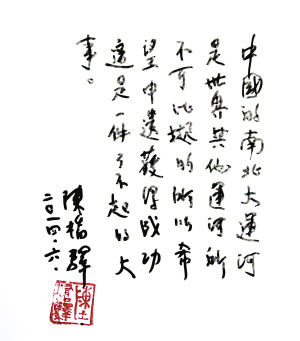 中國的南北大運河
是世界其他運河所
不可比拟的所以希
望申遺獲得成功
這是一件了不起的大
事。
陳橋驛
二〇一四.六.